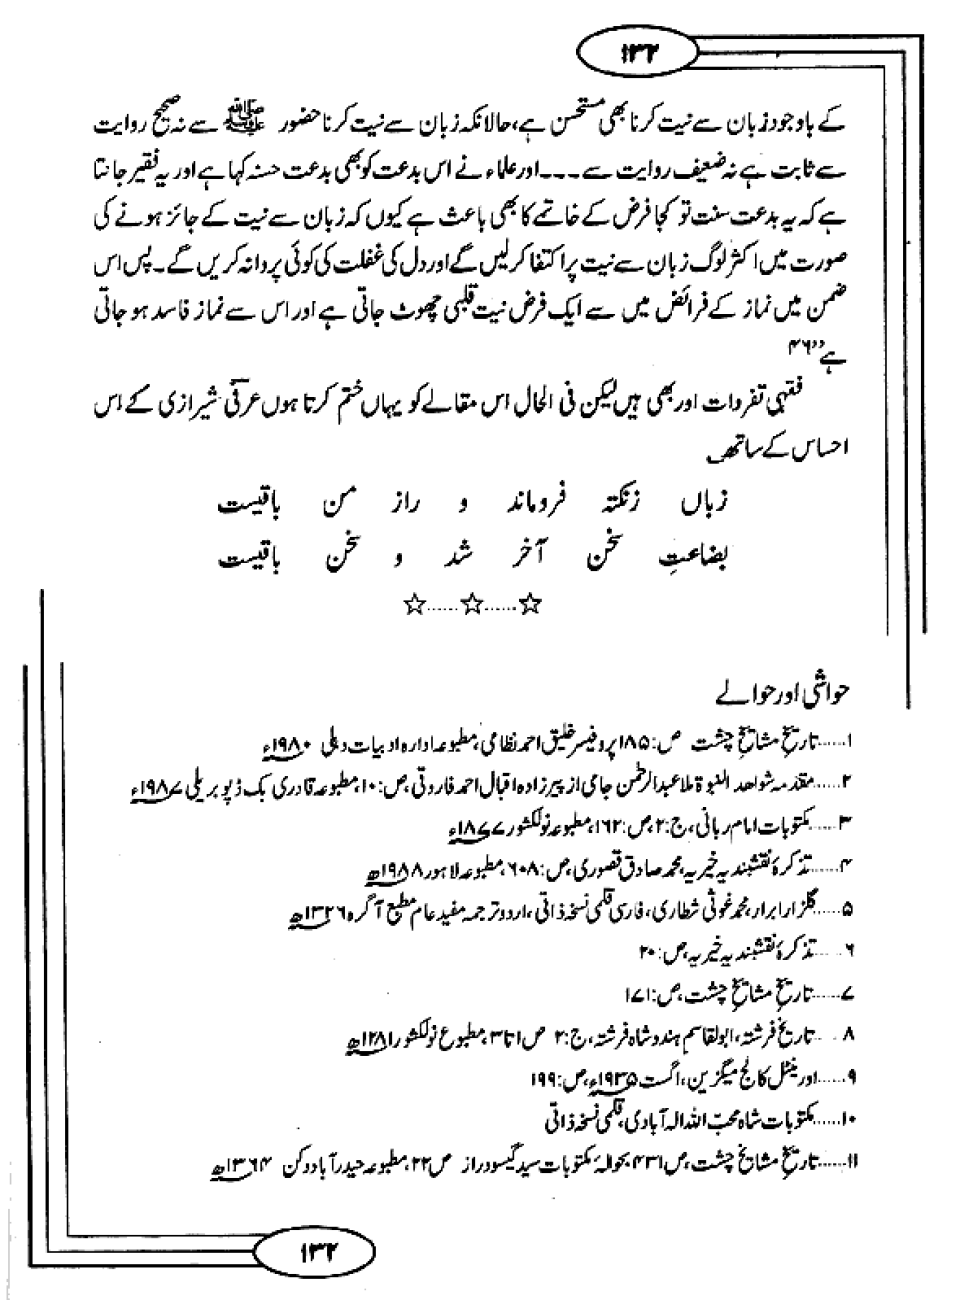 ۱۳۲
کے باوجود زبان سے نیت کرنا بھی مستحسن ہے، حالانکہ زبان سے نیت کرنا حضور ﷺ سے نہ صحیح روایت
سے ثابت ہے نہ ضعیف روایت سے ۔۔۔ اور علماء نے اس بدعت کو بھی بدعت حسنہ کہا ہے اور یہ فقیر جانتا
ہے کہ یہ بدعت سنت تو کجا فرض کے خاتمے کا بھی باعث ہے کیوں کہ زبان سے نیت کے جائز ہونے کی
صورت میں اکثر لوگ زبان سے نیت پر اکتفا کر لیں گے اور دل کی غفلت کی کوئی پروا نہ کریں گے۔ پس اس
ضمن میں نماز کے فرائض میں سے ایک فرض نیت قلبی چھوٹ جاتی ہے اور اس سے نماز فاسد ہو جاتی
ہے‘‘۴۶
فقہی تفردات اور بھی ہیں لیکن فی الحال اس مقالے کو یہاں ختم کرتا ہوں عرفی شیرازی کے اس
احساس کے ساتھ۔
زباں زنکتہ فروماند و راز من باقیست
بضاعتِ سخن آخر شد و سخن باقیست
☆......☆......☆
حواشی اور حوالے
۱......تاریخ مشایخ چشت ص:۱۸۵ پروفیسر خلیق احمد نظامی، مطبوعہ ادارہ ادبیات دہلی ۱۹۸۰ء
۲......مقدمہ شواہد النبوۃ ملا عبدالرحمٰن جامی از پیرزادہ اقبال احمد فاروقی، ص:۱۰، مطبوعہ قادری بک ڈپو بریلی ۱۹۸۷ء
۳......مکتوبات امام ربانی، ج:۲، ص:۱۶۲، مطبوعہ نولکشور ۱۸۷۷ء
۴......تذکرۂ نقشبندیہ خیریہ، محمد صادق قصوری، ص:۶۰۸، مطبوعہ لاہور ۱۹۸۸ھ
۵......گلزار ابرار، محمد غوثی شطاری، فارسی قلمی نسخہ ذاتی، اردو ترجمہ مفید عام مطبع آگرہ ۱۳۲۶ھ
۶......تذکرۂ نقشبندیہ خیریہ، ص:۲۰
۷......تاریخ مشایخ چشت، ص:۱۷۱
۸......تاریخ فرشتہ، ابوالقاسم ہندو شاہ فرشتہ، ج:۲ ص ۱ تا ۳، مطبوع نولکشور ۱۲۸۱ھ
۹......اورینٹل کالج میگزین، اگست ۱۹۳۵ء، ص:۱۹۹
۱۰......مکتوبات شاہ محبّ اللہ الہ آبادی، قلمی نسخہ ذاتی
۱۱......تاریخ مشایخ چشت، ص ۴۳۱، بحوالہ مکتوبات سید گیسودراز ص ۲۲، مطبوعہ حیدرآباد دکن ۱۳۶۴ھ
۱۳۲